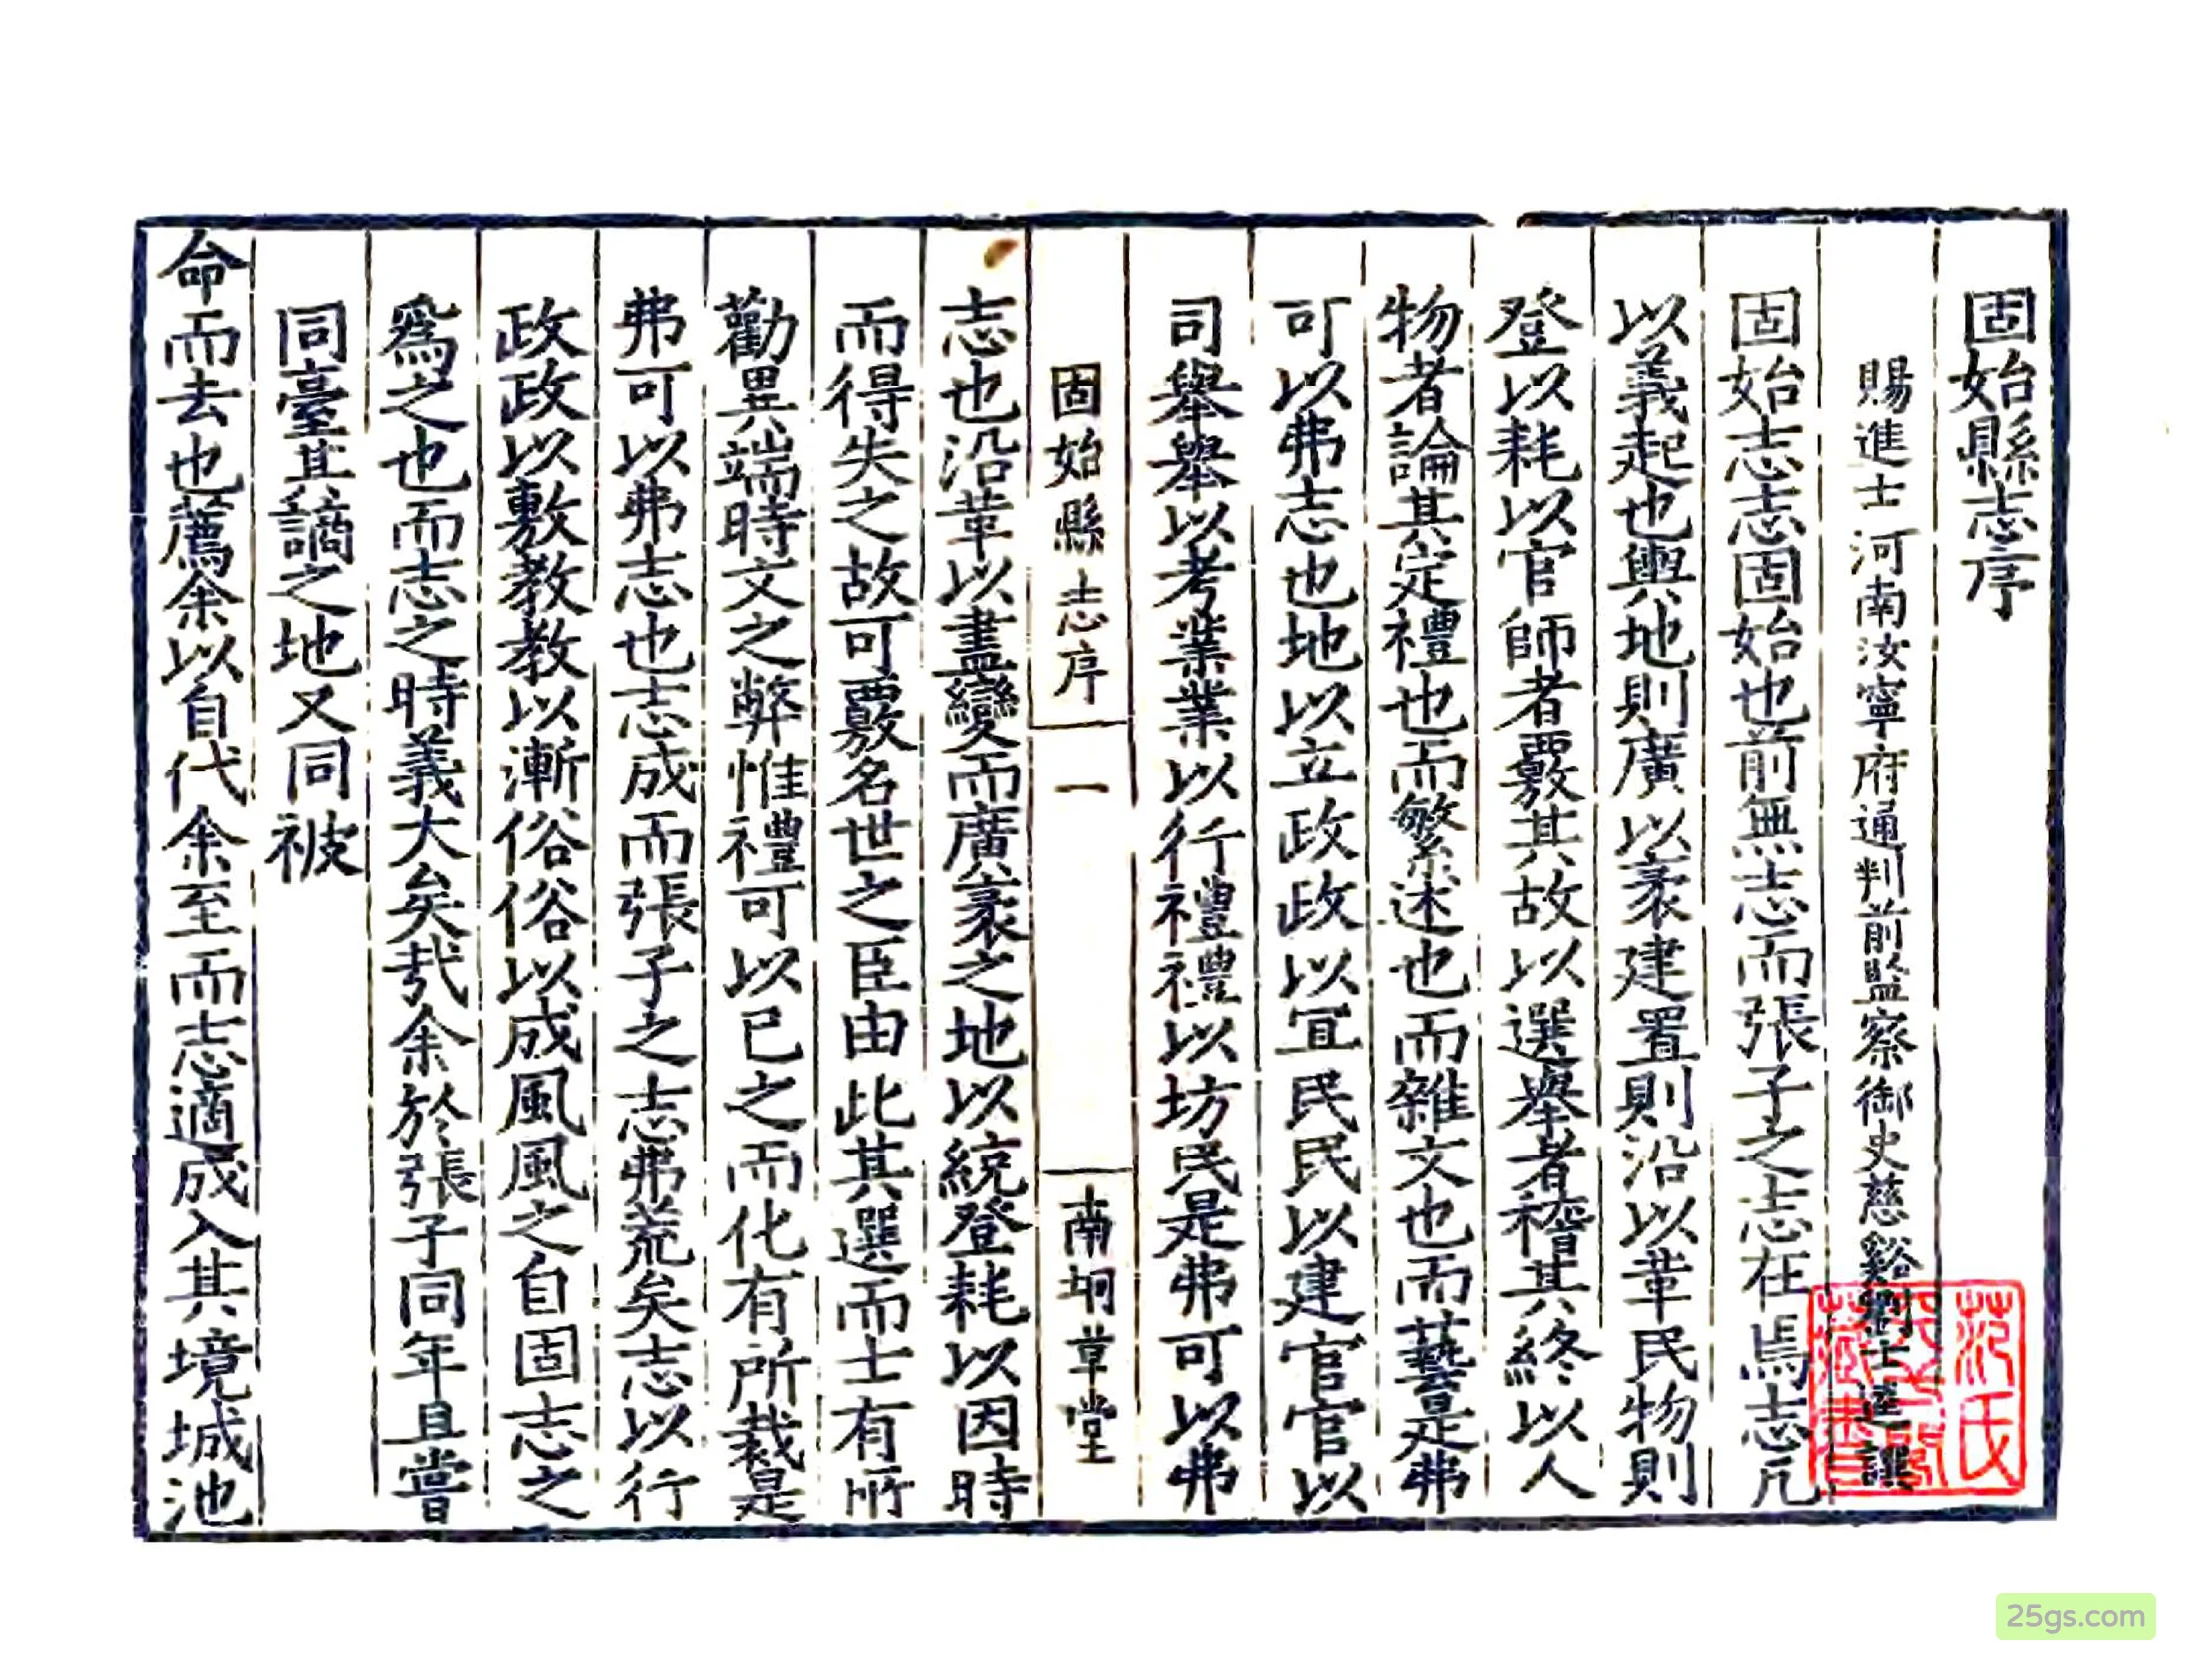 固始縣志序
賜進士河南汝寧府通判前監察御史慈谿劉士逵譔
固始志志固始也前無志而張子之志在焉志凡
以義起也輿地則廣以袤建置則沿以革民物則
登以耗以官師者覈其故以選舉者稽其終以人
物者論其定禮也而繁述也而雜文也而藝是弗
可以弗志也地以立政政以宜民民以建官官以
司舉舉以考業業以行禮禮以坊民是弗可以弗
固始縣志序
一
南坰草堂
志也沿革以盡變而廣袤之地以統登耗以因時
而得失之故可覈名世之臣由此其選而士有所
勸異端時文之弊惟禮可以已之而化有所裁是
弗可以弗志也志成而張子之志弗荒矣志以行
政政以敷教教以漸俗俗以成風風之自固志之
爲之也而志之時義大矣哉余於張子同年且嘗
同臺其謫之地又同被
命而去也薦余以自代余至而志適成入其境城池
范氏
天一閣
藏書
25gs.com